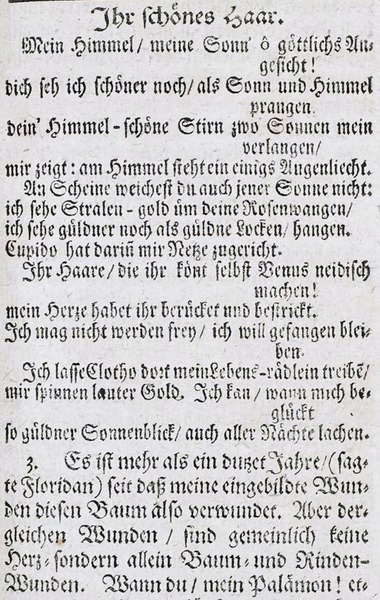 Ihr schönes Haar.
Mein Himmel/ meine Sonn' ô göttlichs An-
gesicht!
dich seh ich schöner noch/ als Sonn und Himmel
prangen.
dein' Himmel-schöne Stirn zwo Sonnen mein
verlangen/
mir zeigt: am Himmel steht ein einigs Augenliecht.
An Scheine weichest du auch jener Sonne nicht:
ich sehe Stralen-gold üm deine Rosenwangen/
ich sehe güldner noch als güldne Locken/ hangen.
Cupido hat dariñ mir Netze zugericht.
Ihr Haare/ die ihr könt selbst Venus neidisch
machen!
mein Herze habet ihr berücket und bestrickt.
Ich mag nicht werden frey/ ich will gefangen blei-
ben.
Ich lasse Clotho dort mein Lebens-rädlein treibē/
mir spinnen lauter Gold. Ich kan/ wann mich be-
glückt
so güldner Sonnenblick/ auch aller Nächte lachen.
3. Es ist mehr als ein dutzet Jahre/ (sag-
te Floridan) seit daß meine eingebildte Wun-
den diesen Baum also verwundet. Aber der-
gleichen Wunden/ sind gemeinlich keine
Herz- sondern allein Baum- und Rinden-
Wunden. Wann du/ mein Palämon! et-